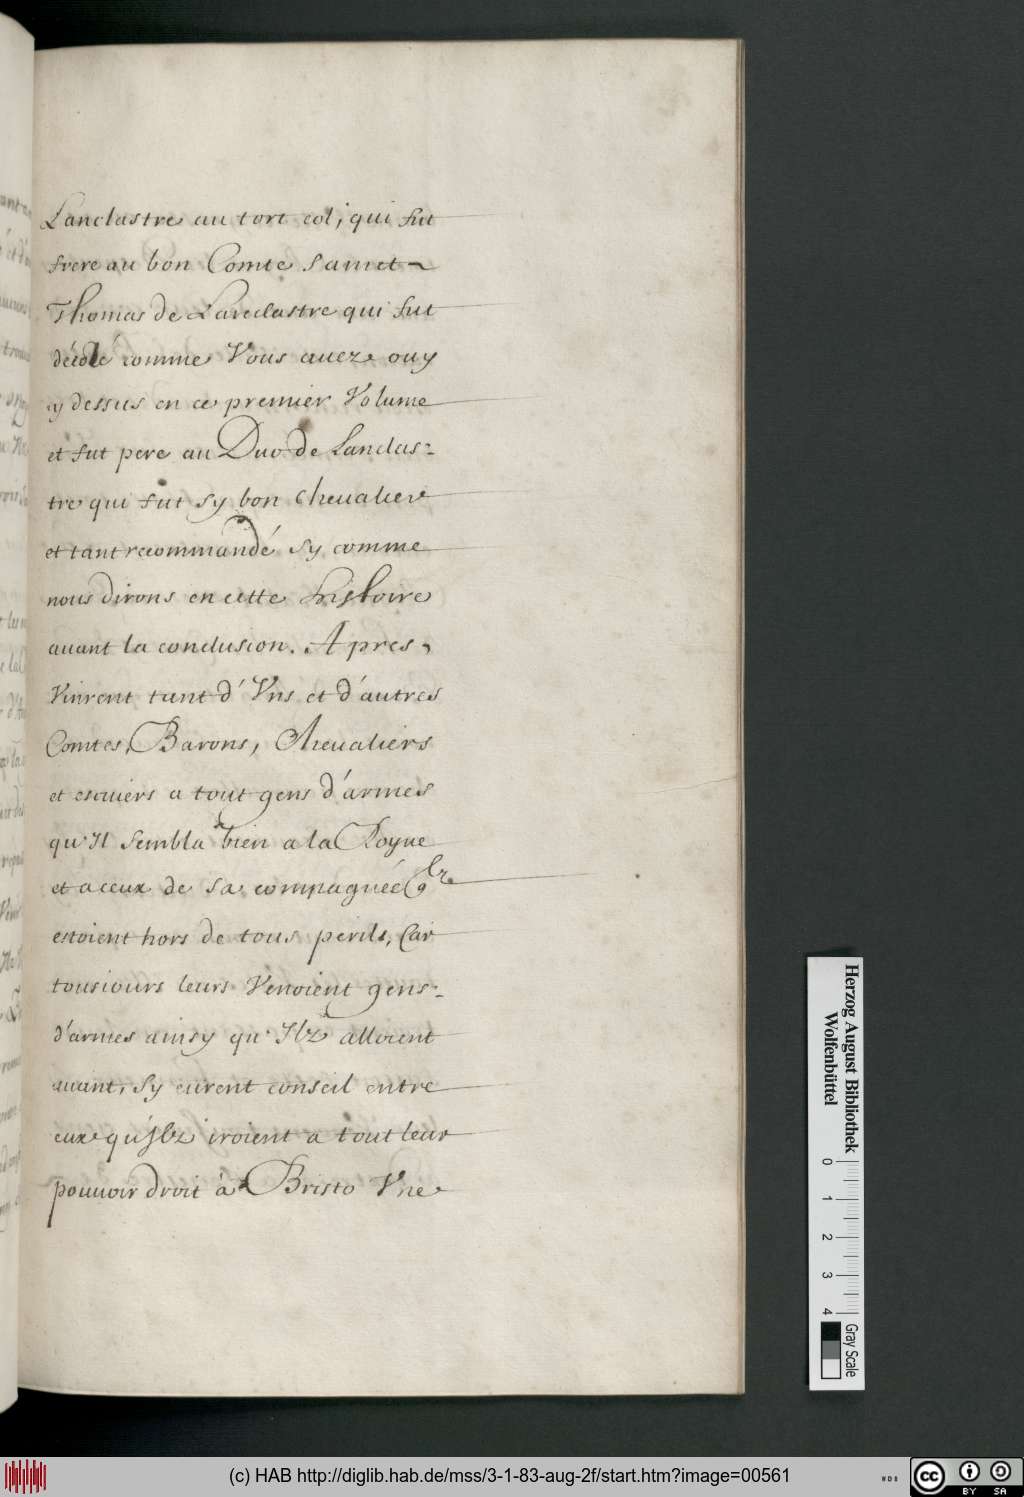 Lanclastre au tort col, qui fut
frere au bon Comte Sainct
Thomas de Lanclastre qui fut
décolé comme Vous auez ouy
cy dessus en ce premier Volume
et fut pere au Duc de Lanclas=
tre qui fut sy bon cheualier
et tant recommandé sy comme
nous dirons en cette histoire
auant la conclusion. Apres,
Vinrent tant d'Vns et d'autres
Comtes, Barons, Cheualiers
et escuiers a tout gens d'armes
qu'Il sembla bien a la Royne
et a ceux de sa compagnée qlz
estoient hors de tous perils, Car
tousiours leurs Venoient gens=
d'armes ainsy qu'Ilz alloient
auant, Sy eurent conseil entre
eux qu'Ilz iroient a tout leur
pouuoir droit à Bristo Vne
Herzog August Bibliothek
Wolfenbüttel
0 1 2 3 4
Gray Scale
(c) HAB http://diglib.hab.de/mss/3-1-83-aug-2f/start.htm?image=00561
WDB
cc
BY SA